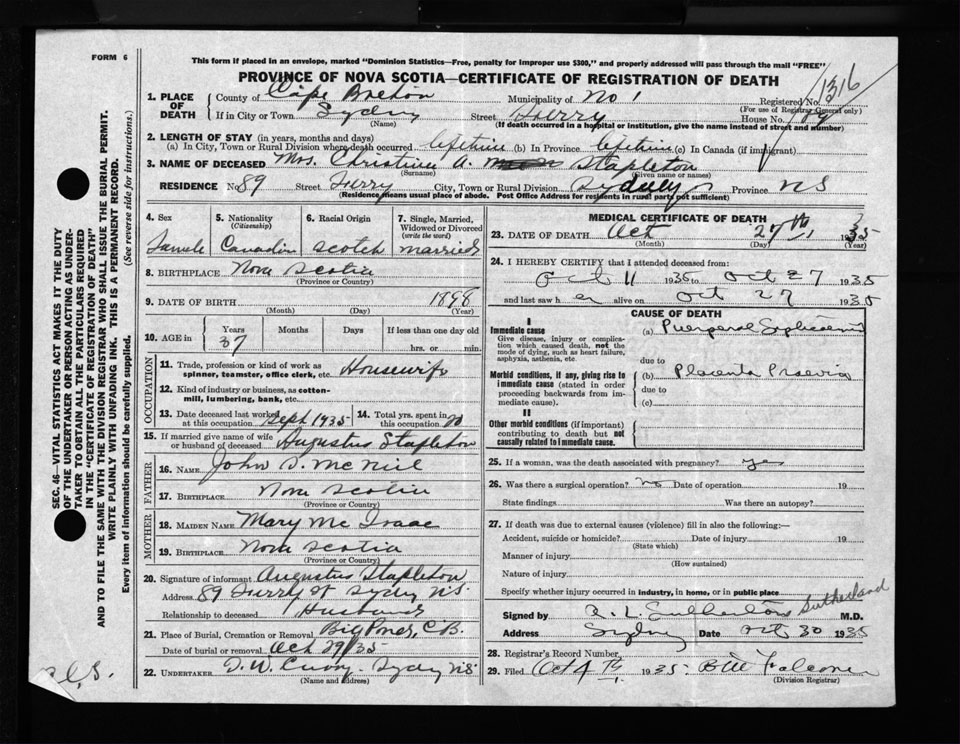 FORM 6
This form if placed in an envelope, marked "Dominion Statistics—Free, penalty for improper use $300," and properly addressed will pass through the mail "FREE"
PROVINCE OF NOVA SCOTIA—CERTIFICATE OF REGISTRATION OF DEATH
1. PLACE OF DEATH County of Cape Breton Municipality of No 1 Registered No. 1316
(For use of Registrar General only)
If in City or Town Sydney Street Ferry House No. 89
(Name) (If death occurred in a hospital or institution, give the name instead of street and number)
2. LENGTH OF STAY (in years, months and days)
(a) In City, Town or Rural Division where death occurred lifetime (b) In Province lifetime (c) In Canada (if immigrant)
3. NAME OF DECEASED Mrs. Christina A. Stapleton
(Surname) (Given name or names)
RESIDENCE No 89 Street Ferry City, Town or Rural Division Sydney Province NS
(Residence means usual place of abode. Post Office Address for residents in rural parts not sufficient)
4. Sex 5. Nationality (Citizenship) 6. Racial Origin 7. Single, Married, Widowed or Divorced (write the word)
Female Canadian Scotch married
8. BIRTHPLACE Nova Scotia
(Province or Country)
9. DATE OF BIRTH 1898
(Month) (Day) (Year)
10. AGE in Years Months Days If less than one day old
37 hrs. or min.
OCCUPATION
11. Trade, profession or kind of work as spinner, teamster, office clerk, etc. Housewife
12. Kind of industry or business, as cotton-mill, lumbering, bank, etc.
13. Date deceased last worked at this occupation Sept 1935 14. Total yrs. spent in this occupation
15. If married give name of wife or husband of deceased Augustus Stapleton
FATHER
16. NAME John D. McNeil
17. BIRTHPLACE Nova Scotia
(Province or Country)
MOTHER
18. MAIDEN NAME Mary McIsaac
19. BIRTHPLACE Nova Scotia
(Province or Country)
20. Signature of informant Augustus Stapleton
Address 89 Ferry St Sydney N.S.
Relationship to deceased Husband
21. Place of Burial, Cremation or Removal Big Pond, C.B.
Date of burial or removal Oct 29/35
22. UNDERTAKER D. W. Curry - Sydney N.S.
(Name and address)
MEDICAL CERTIFICATE OF DEATH
23. DATE OF DEATH Oct 27th 1935
(Month) (Day) (Year)
24. I HEREBY CERTIFY that I attended deceased from:
Oct 11 1935 to Oct 27 1935
and last saw her alive on Oct 27 1935
CAUSE OF DEATH
I
Immediate cause (a) Puerperal Septicaemia
Give disease, injury or complication which caused death, not the mode of dying, such as heart failure, asphyxia, asthenia, etc.
due to
Morbid conditions, if any, giving rise to immediate cause (stated in order proceeding backwards from immediate cause). (b) Placenta Praevia
due to
(c)
II
Other morbid conditions (if important) contributing to death but not causally related to immediate cause.
25. If a woman, was the death associated with pregnancy? yes
26. Was there a surgical operation? no Date of operation 19
State findings Was there an autopsy?
27. If death was due to external causes (violence) fill in also the following:—
Accident, suicide or homicide? Date of injury 19
(State which)
Manner of injury
(How sustained)
Nature of injury
Specify whether injury occurred in industry, in home, or in public place
Signed by Sutherland M.D.
Address Sydney Date Oct 30 1935
28. Registrar's Record Number
29. Filed Oct 1935
(Division Registrar)
SEC. 46—VITAL STATISTICS ACT MAKES IT THE DUTY
OF THE UNDERTAKER OR PERSON ACTING AS UNDER-
TAKER TO OBTAIN ALL THE PARTICULARS REQUIRED
IN THE "CERTIFICATE OF REGISTRATION OF DEATH"
AND TO FILE THE SAME WITH THE DIVISION REGISTRAR WHO SHALL ISSUE THE BURIAL PERMIT.
WRITE PLAINLY WITH UNFADING INK. THIS IS A PERMANENT RECORD.
Every item of information should be carefully supplied. (See reverse side for instructions.)